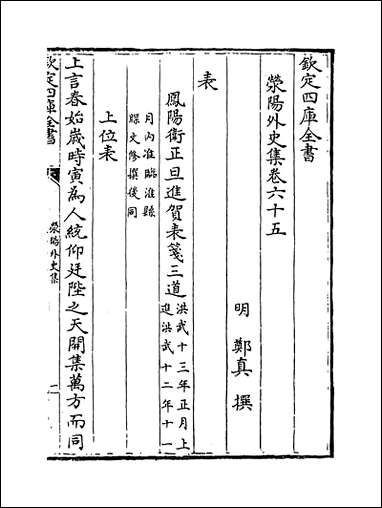 欽定四庫全書
滎陽外史集卷六十五
明 鄭真 撰
表
鳳陽衛正旦進賀表箋三道洪武十三年正月上
進洪武十二年十一
月內准臨淮縣
牒文修撰後同
上位表
上言春始歲時寅為人統仰廷陛之天開集萬方而同
欽定四庫全書
滎陽外史集
一